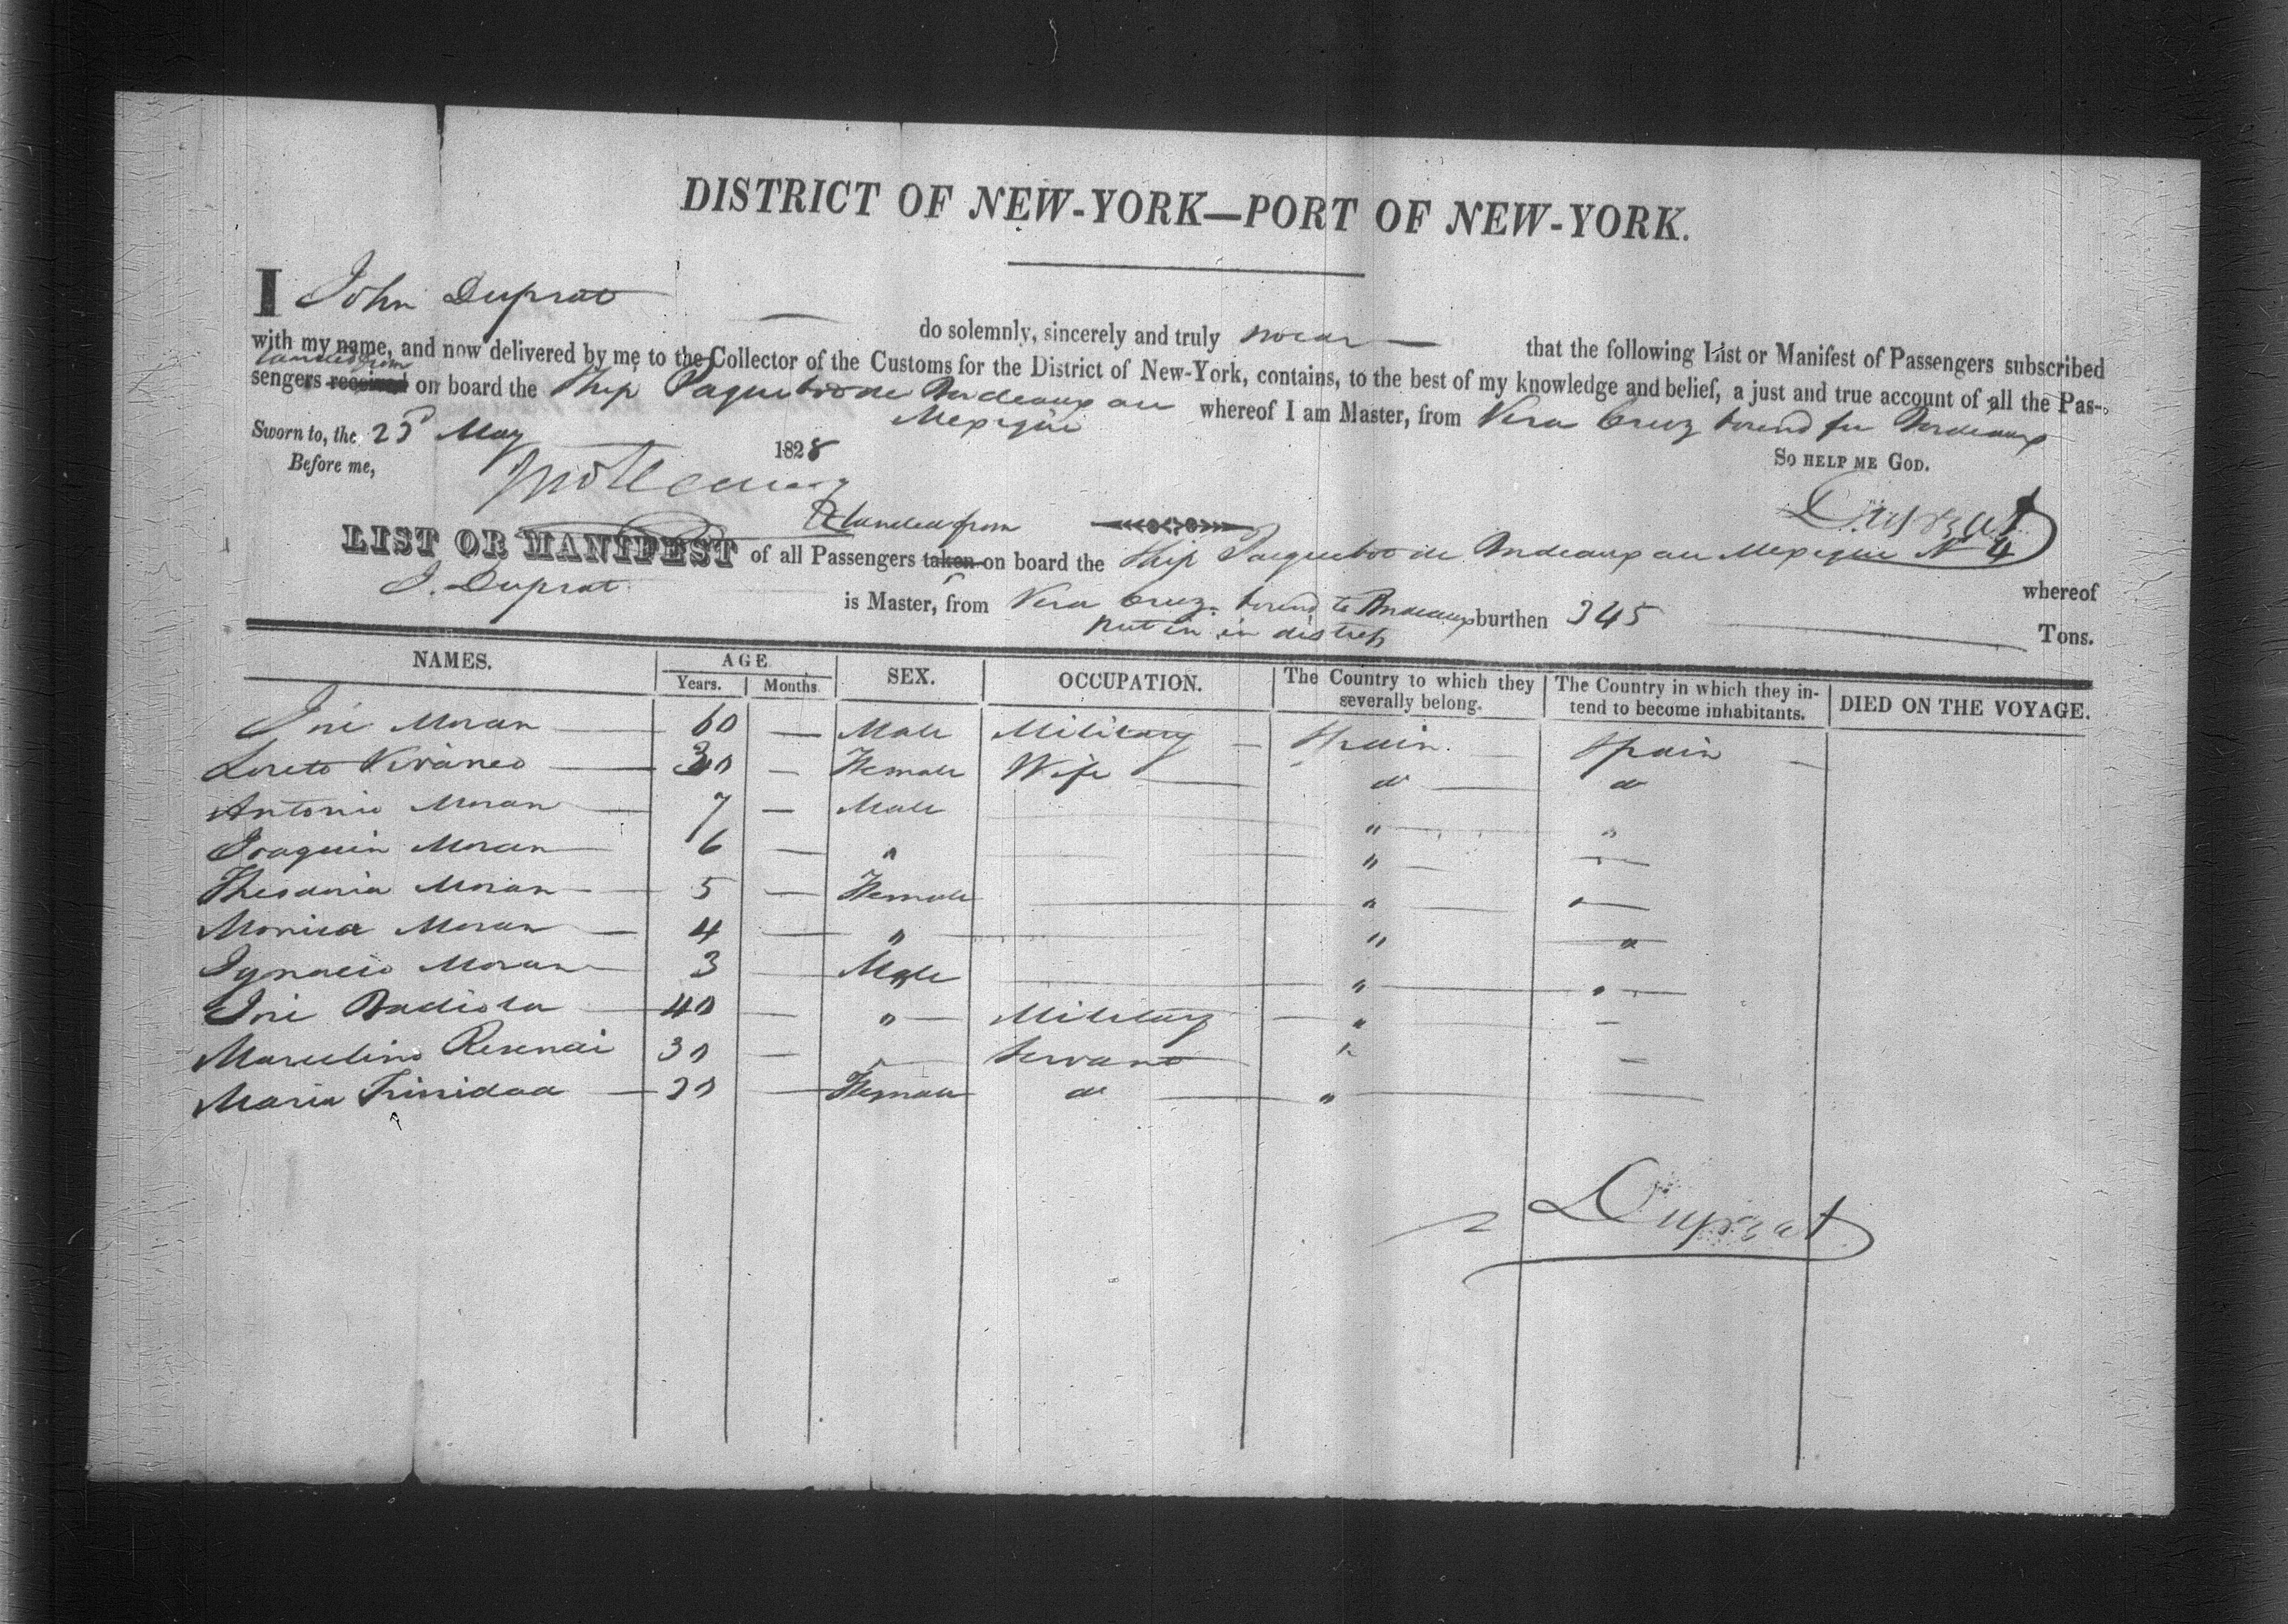 DISTRICT OF NEW-YORK—PORT OF NEW-YORK.
I John Duprat do solemnly, sincerely and truly swear that the following List or Manifest of Passengers subscribed
with my name, and now delivered by me to the Collector of the Customs for the District of New-York, contains, to the best of my knowledge and belief, a just and true account of all the Pas-
landed from
sengers received on board the Ship Paquebot de Bordeaux au Mexique whereof I am Master, from Vera Cruz bound for Bordeaux
Sworn to, the 23d May 1828
So help me God.
Before me,
Duprat
landed from
LIST OR MANIFEST of all Passengers taken on board the Ship Paquebot de Bordeaux au Mexique No 4 whereof
J. Duprat is Master, from Vera Cruz bound to Bordeaux burthen 345 Tons.
put in in distress
NAMES. AGE SEX. OCCUPATION. The Country to which they severally belong. The Country in which they intend to become inhabitants. DIED ON THE VOYAGE.
Years. Months
José Moran 60 — Male Military — Spain — Spain —
Loreto Vivanco 30 — Female Wife do do
Antonio Moran 7 — Male " "
Joaquin Moran 6 — " " —
Moran 5 — Female " "
Monica Moran 4 — " " "
Ignacio Moran 3 — Male " "
José Badiola 40 — " Military " —
Marcelino 30 — " Servant " —
Maria Trinidad 20 — Female do " —
Duprat